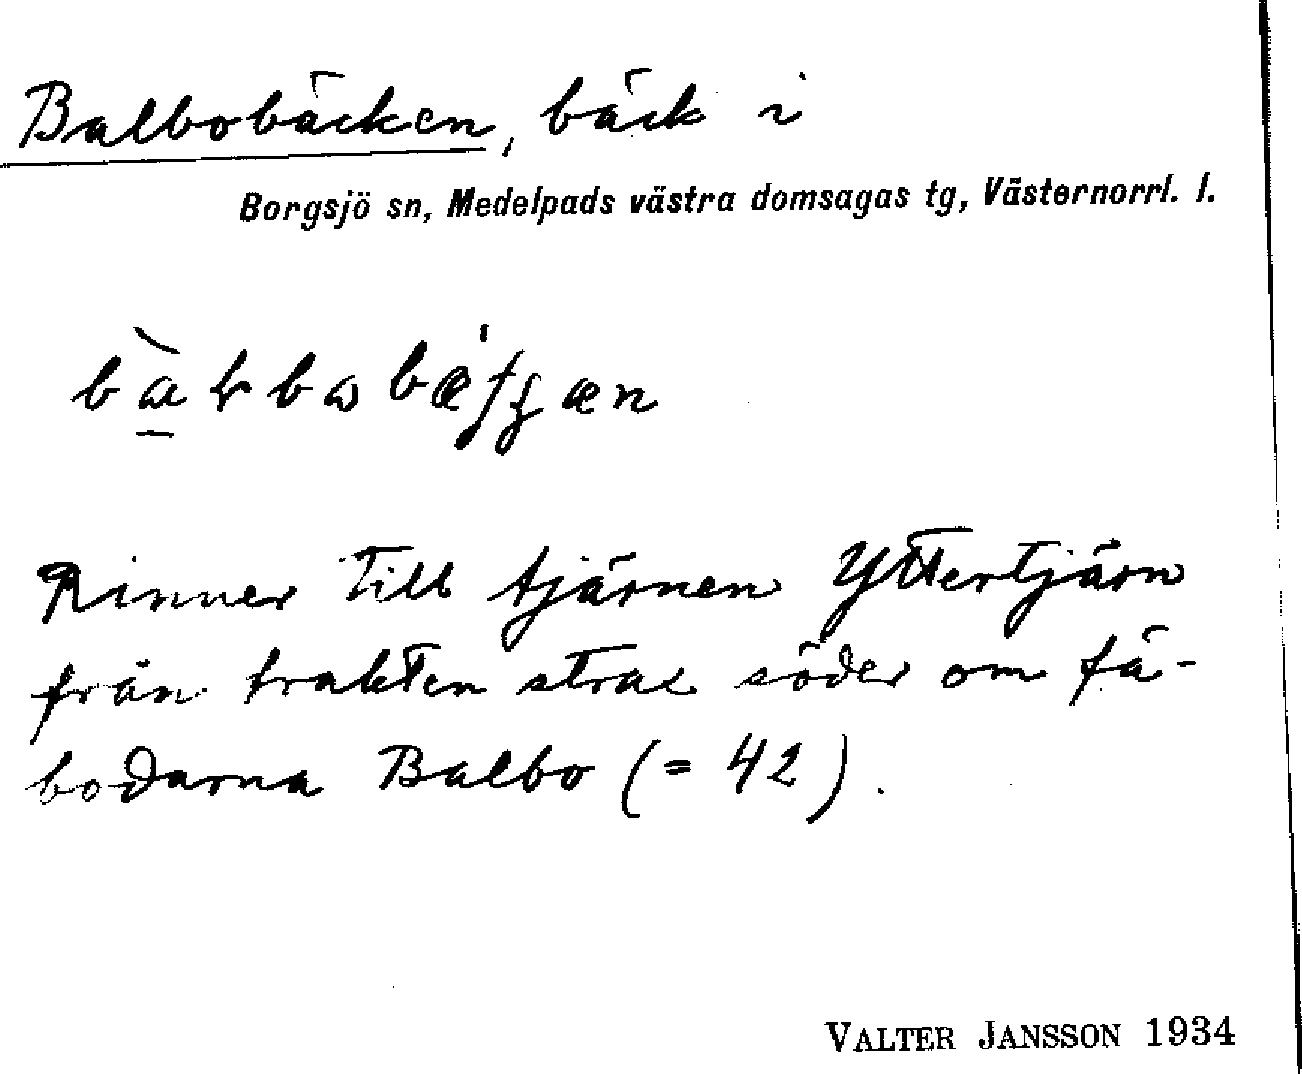 Balbobäcken, bäck i
Borgsjö sn, Medelpads västra domsagas tg, Västernorrl. l.
Rinner till tjärnen Yttertjärn
från trakten strax söder om fä-
bodarna Balbo (= 42).
VALTER JANSSON 1934